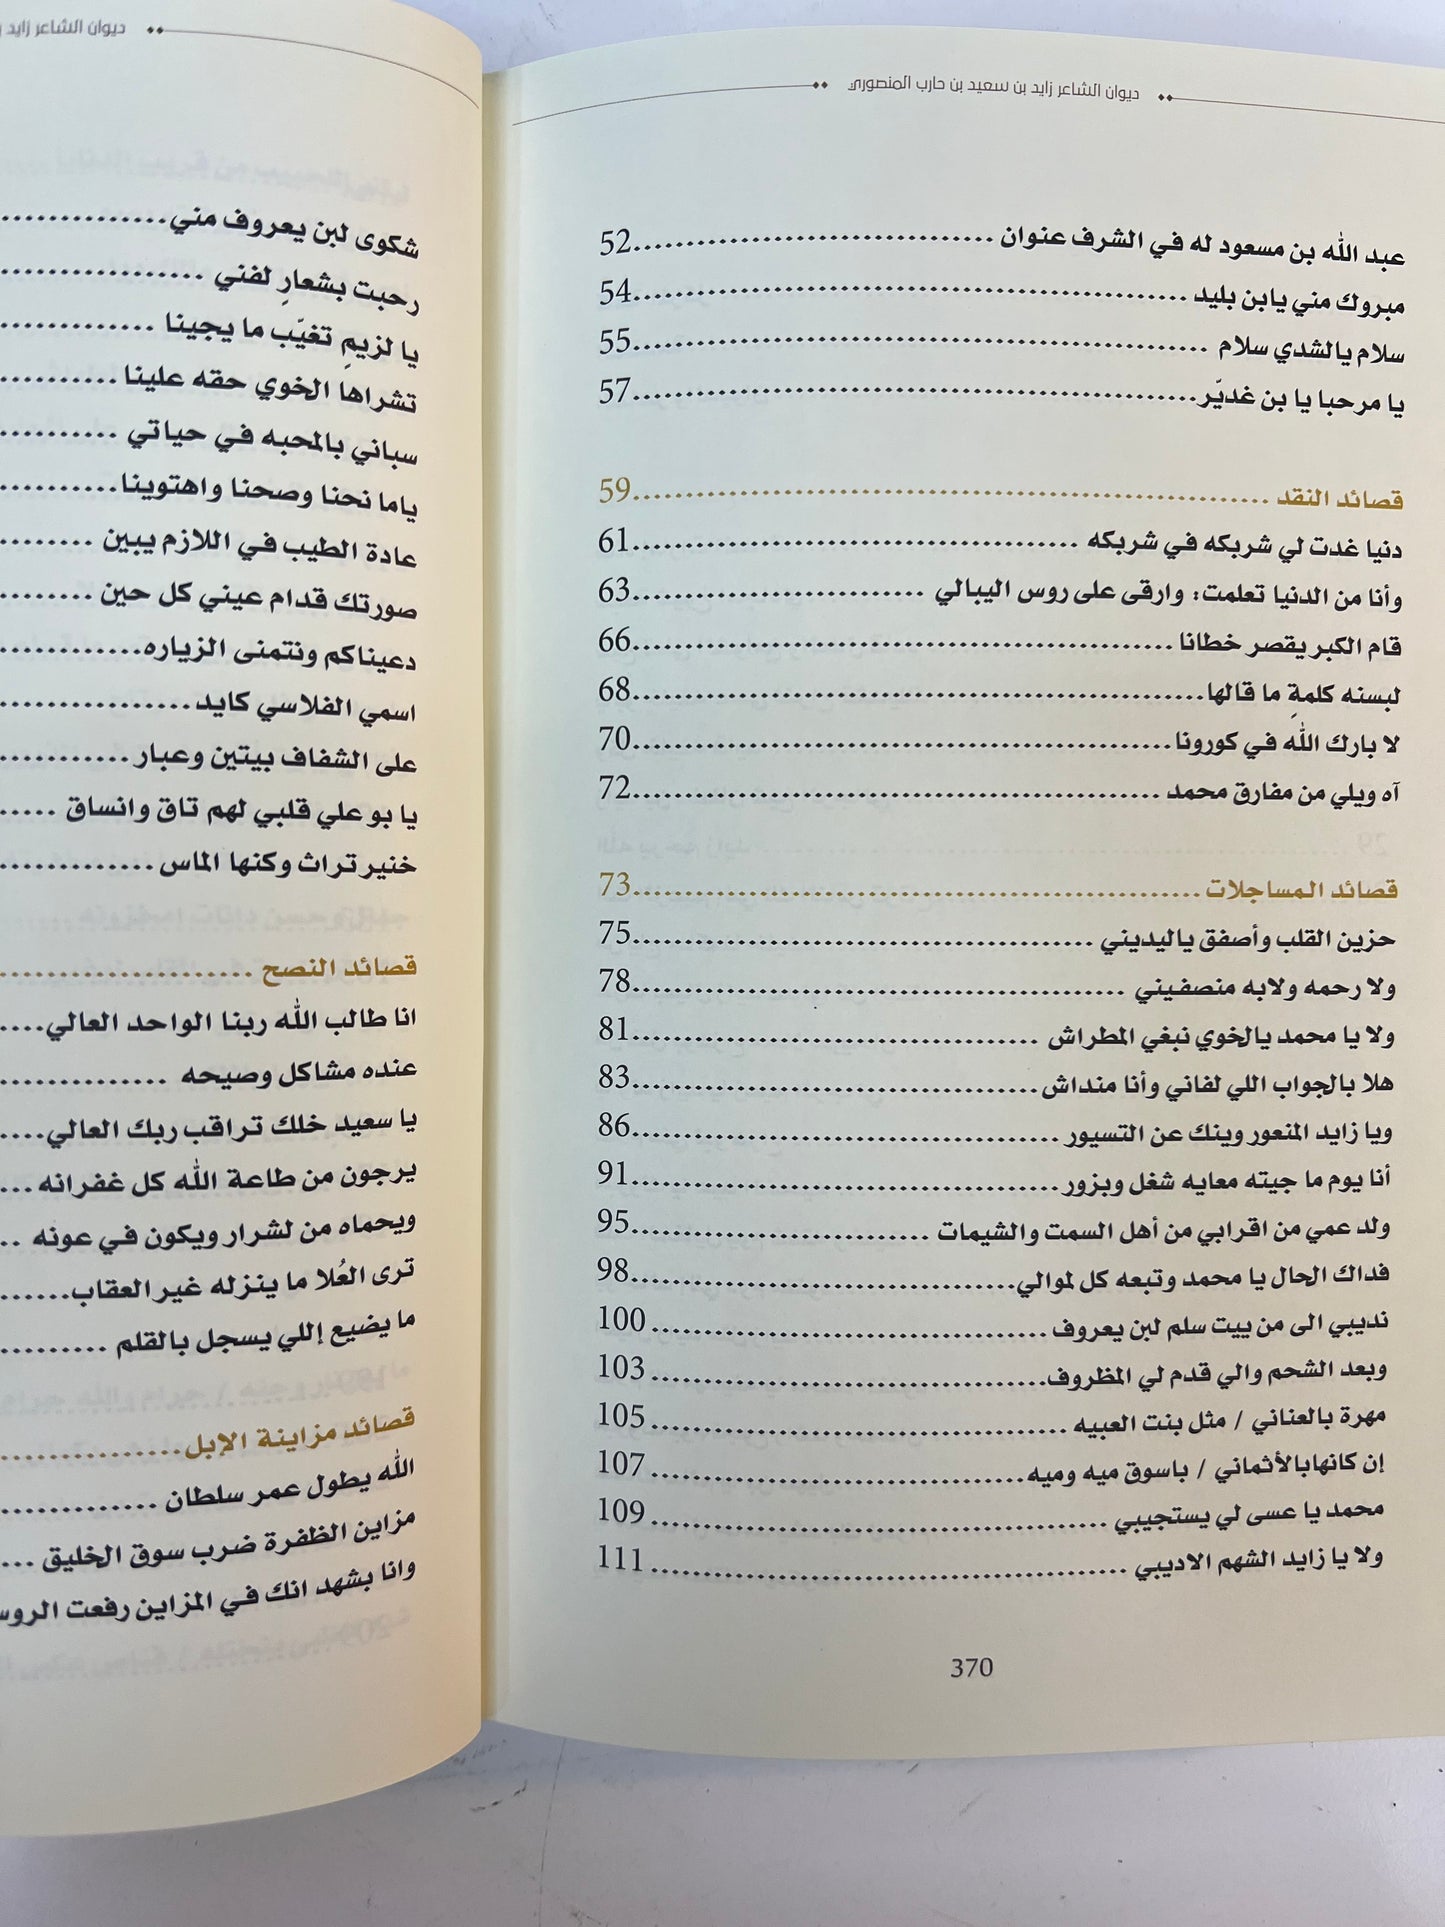 ديوان الشاعر زايد بن سعيد بن حارب المنصوري
عبد الله بن مسعود له في الشرف عنوان ........ 52
مبروك مني يابن بليد ........ 54
سلام يالشدي سلام ........ 55
يا مرحبا يا بن غديّر ........ 57
قصائد النقد ........ 59
دنيا غدت لي شربكه في شربكه ........ 61
وأنا من الدنيا تعلمت: وارقى على روس اليبالي ........ 63
قام الكبر يقصر خطانا ........ 66
لبسنه كلمةِ ما قالها ........ 68
لا بارك الله في كورونا ........ 70
آه ويلي من مفارق محمد ........ 72
قصائد المساجلات ........ 73
حزين القلب وأصفق ياليديني ........ 75
ولا رحمه ولابه منصفيني ........ 78
ولا يا محمد يالخوي نبغي المطراش ........ 81
هلا بالجواب اللي لفاني وأنا منداش ........ 83
ويا زايد المنعور وينك عن التسيور ........ 86
أنا يوم ما جيته معايه شغل وبزور ........ 91
ولد عمي من اقرابي من أهل السمت والشيمات ........ 95
فداك الحال يا محمد وتبعه كل لموالي ........ 98
نديبي الى من ييت سلم لبن يعروف ........ 100
وبعد الشحم والي قدم لي المظروف ........ 103
مهرة بالعناني / مثل بنت العبيه ........ 105
إن كانهابالأثماني / باسوق ميه وميه ........ 107
محمد يا عسى لي يستجيبي ........ 109
ولا يا زايد الشهم الاديبي ........ 111
370
ديوان الشاعر زايد
شكوى لبن يعروف مني ........
رحبت بشعارِ لفني ........
يا لزيمِ تغيّب ما يجينا ........
تشراها الخوي حقه علينا ........
سباني بالمحبه في حياتي ........
ياما نحنا وصحنا واهتوينا ........
عادة الطيب في اللازم يبين ........
صورتك قدام عيني كل حين ........
دعيناكم ونتمنى الزياره ........
اسمي الفلاسي كايد ........
على الشفاف بيتين وعبار ........
يا بو علي قلبي لهم تاق وانساق .....
خنير تراث وكنها الماس ........
قصائد النصح ........
انا طالب الله ربنا الواحد العالي ....
عنده مشاكل وصيحه ........
يا سعيد خلك تراقب ربك العالي ....
يرجون من طاعة الله كل غفرانه ...
ويحماه من لشرار ويكون في عونه ..
ترى العُلا ما ينزله غير العقاب ......
ما يضيع إللي يسجل بالقلم ........
قصائد مزاينة الإبل ........
الله يطول عمر سلطان ........
مزاين الظفرة ضرب سوق الخليق ...
وانا بشهد انك في المزاين رفعت